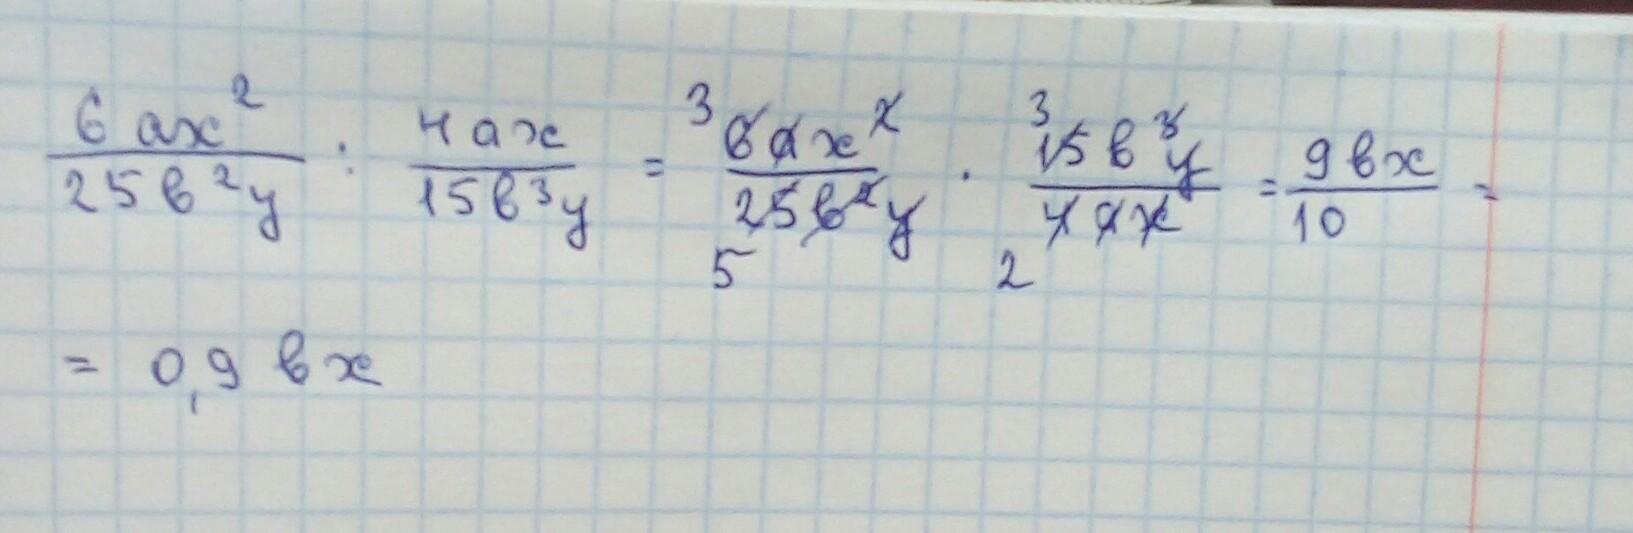 6ax² / 25b²y : 4ax / 15b³y = ³6ax² / 25b²y 5 · ³15b³y / 4ax 2 = 9bx / 10 =
= 0,9bx